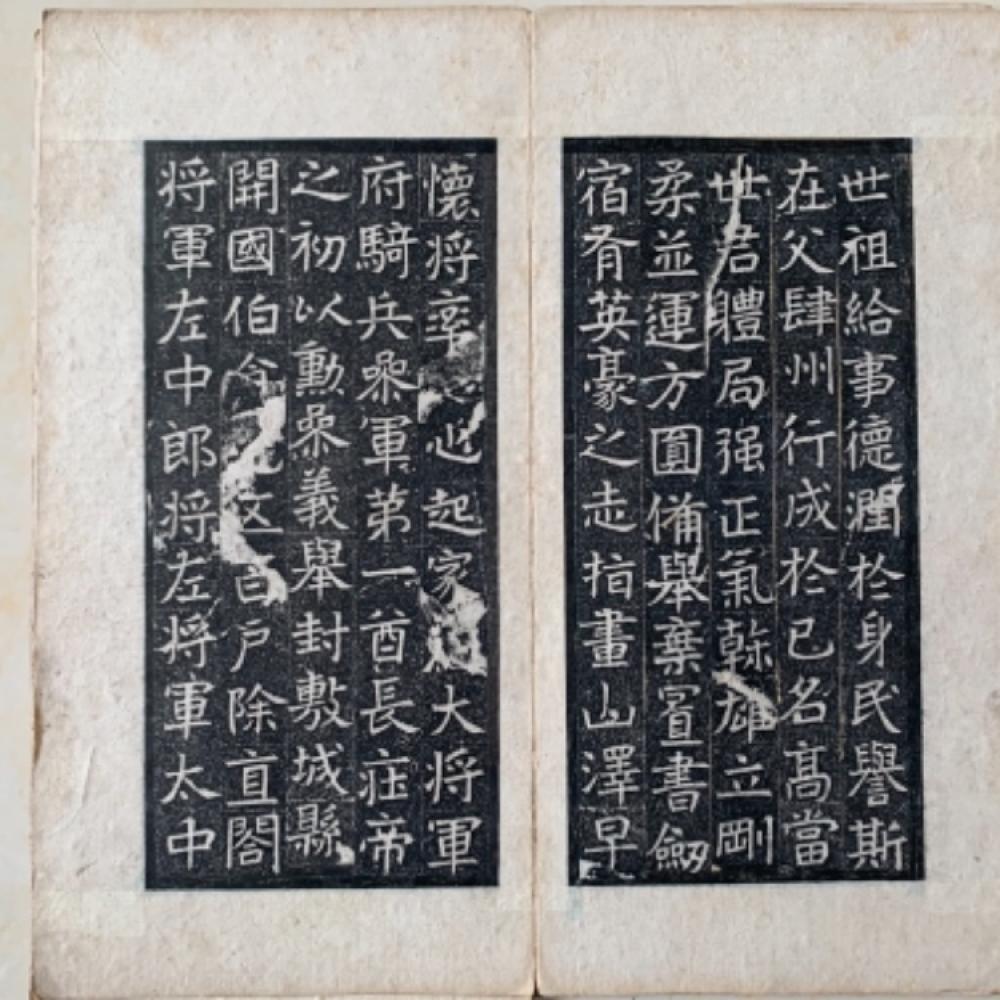 世祖給事德潤於身民譽斯
在父肆州行成於已名髙當
世君體局强正氣榦雄立剛
柔並運方圓備舉棄置書劔
宿有英豪之志指畫山澤早
懷将率之心起家大将軍
府騎兵叅軍第一酋長荘帝
之初以勳叅義舉封敷城縣
開國伯食邑五百户除直閤
将軍左中郎将左将軍太中